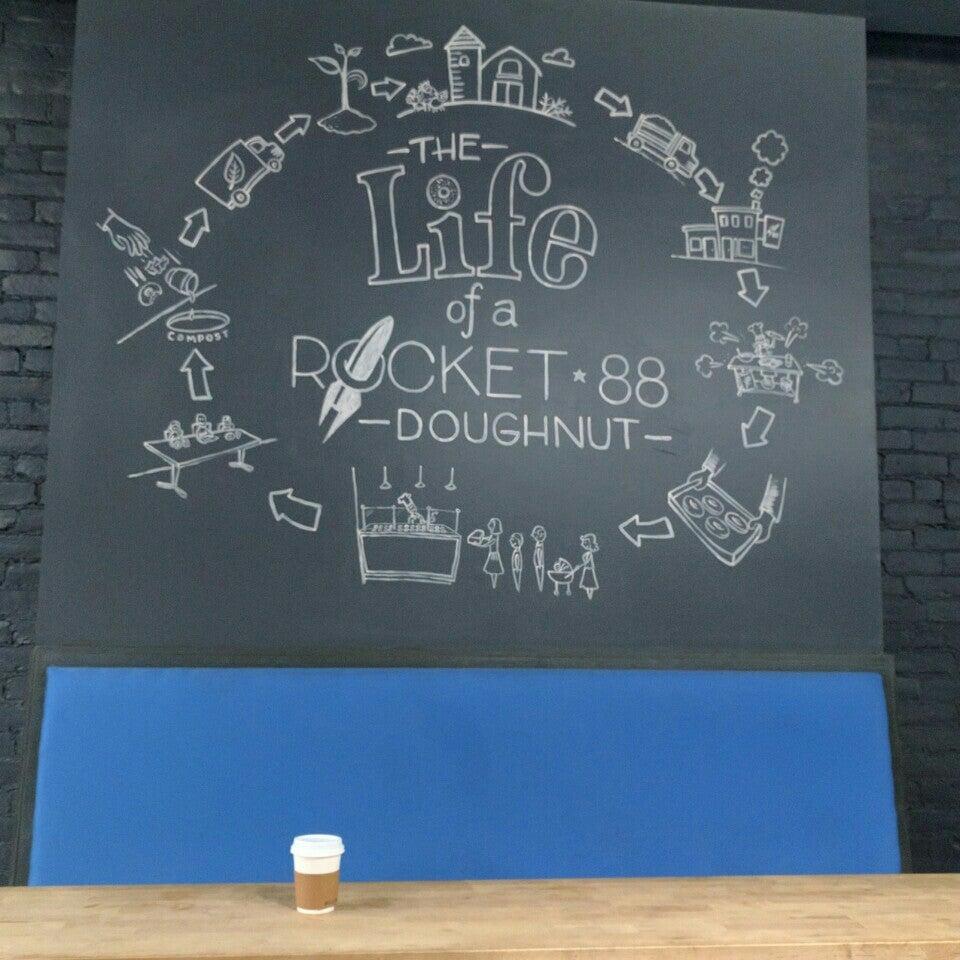 THE
Life
of a
ROCKET 88
DOUGHNUT
COMPOST